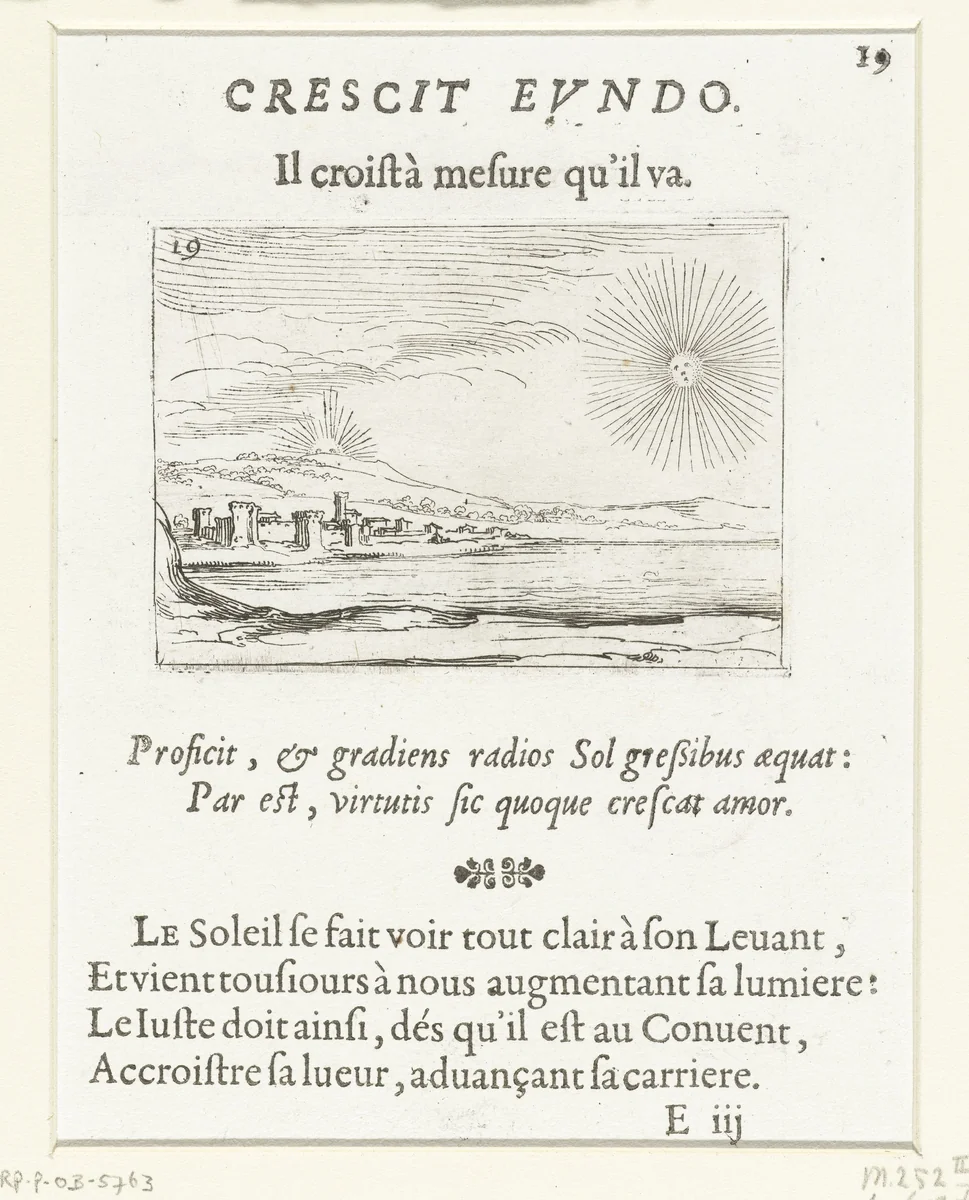 19
CRESCIT EVNDO.
Il croiſt à meſure qu'il va.
19
Proficit, & gradiens radios Sol greſsibus æquat:
Par eſt, virtutis ſic quoque creſcat amor.
LE Soleil ſe fait voir tout clair à ſon Leuant,
Et vient touſiours à nous augmentant ſa lumiere:
Le Iuſte doit ainſi, dés qu'il eſt au Conuent,
Accroiſtre ſa lueur, aduançant ſa carriere.
E iij
RP-P-OB-5763
M.252 II